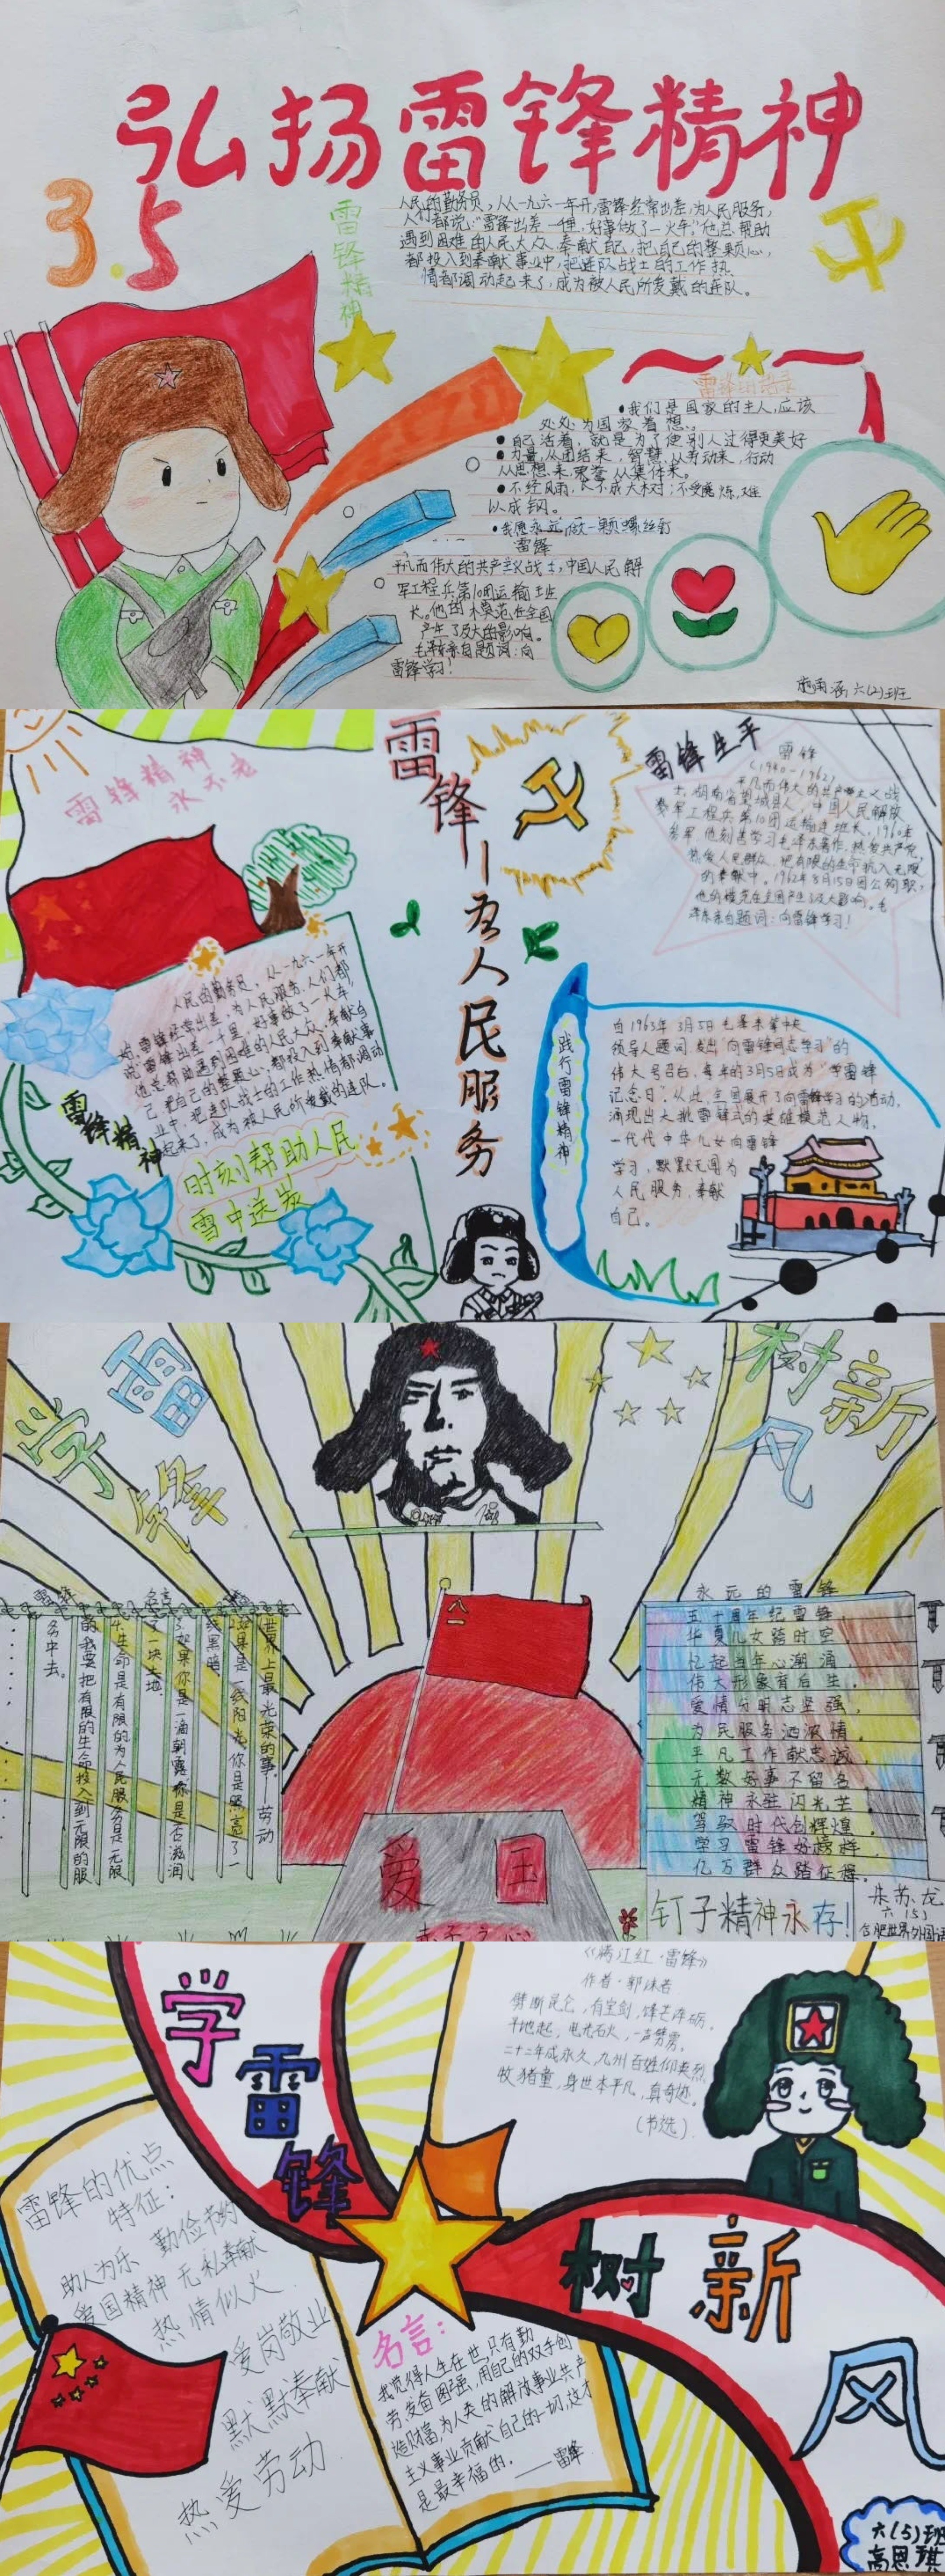 弘扬雷锋精神
3.5
雷锋精神
人民的勤务员，从一九六一年开,雷锋经常出差,为人民服务,
人们都说:"雷锋出差一千里,好事做了一火车"他总帮助
遇到困难的人民大众,奉献自己,把自己的整颗心,
都投入到奉献事业中,把连队战士的工作热
情都调动起来了,成为被人民所爱戴的连队。
我们是国家的主人,应该
处处为国家着想。
自己活着，就是为了使别人过得更美好
力量,从团结来，智慧,从劳动来，行动
从思想来,荣誉从集体来。
不经风雨,长不成大树;不受磨炼,难
以成钢。
我愿永远做一颗螺丝钉
雷锋
平凡而伟大的共产主义战士,中国人民解
军工程兵第10团运输连班
长。他的模范在全国
产生了及大的影响。
毛泽东亲自题词:向
雷锋学习!
六(2)班
雷锋精神
永不老
雷锋—为人民服务
雷锋生平
雷锋
(1940-1962)
平凡而伟大的共产主义战
士,湖南省望城县人，中国人民解放
军工程兵第10团运输连班长，1960年
参军，他刻苦学习毛泽东著作,热爱共产党,
热爱人民群众，把有限的生命投入无限
的奉献中。1962年8月15日因公殉职,
他的模范在全国产生了及大影响。毛
泽东亲自题词:向雷锋学习!
人民的勤务员，从一九六一年开
始,雷锋经常出差,为人民服务,人们都
说:"雷锋出差一千里,好事做了一火车,
他总帮助遇到困难的人民大众,奉献自
己,把自己的整颗心,都投入到奉献事
业中,把连队战士的工作热情都调动
起来了,成为被人民所爱戴的连队。
雷锋精神
时刻帮助人民
雪中送炭
践行雷锋精神
自1963年3月5日毛泽东等中央
领导人题词,发出"向雷锋同志学习"的
伟大号召后,每年的3月5日成为"学雷锋
纪念日"。从此,全国展开了向雷锋学习的活动,
涌现出大批雷锋式的英雄模范人物,
一代代中华儿女向雷锋
学习，默默无闻为
人民服务,奉献
自己。
学雷锋
树新风
雷锋名言
世界上最光荣的事——劳动
如果你是一线阳光,你是否照亮了一
线黑暗
如果你是一滴朝露,你是否滋润
了一块土地.
生命是有限的为人民服务是无限
的我要把有限的生命投入到无限的服
务中去。
八一
爱国
赤子之心
永远的雷锋
五十周年纪雷锋，
华夏儿女跨时空。
忆起当年心潮涌，
伟大形象育后生。
爱憎分明志坚强，
为民服务洒浓情。
平凡工作献忠诚，
无数好事不留名。
精神永驻闪光芒，
驾驭时代创辉煌。
学习雷锋好榜样，
亿万群众踏征程。
钉子精神永存!
朱苏龙
六(5)
合肥世界外国语
学雷锋
树新风
《满江红·雷锋》
作者·郭沫若
劈断昆仑,有宝剑,锋芒淬砺.
平地起，电光石火，一声劈雳.
二十二年成永久,九州百姓仰英烈.
牧猪童，身世本平凡,真奇迹.
(节选)
雷锋的优点
特征:
助人为乐 勤俭节约
爱国精神 无私奉献
热情似火
爱岗敬业
默默奉献
热爱劳动
名言:
我觉得人生在世,只有勤
劳,发奋图强,用自己的双手创
造财富,为人类的解放事业共产
主义事业贡献自己的一切,这才
是最幸福的.
——雷锋
六(5)班
高恩琪